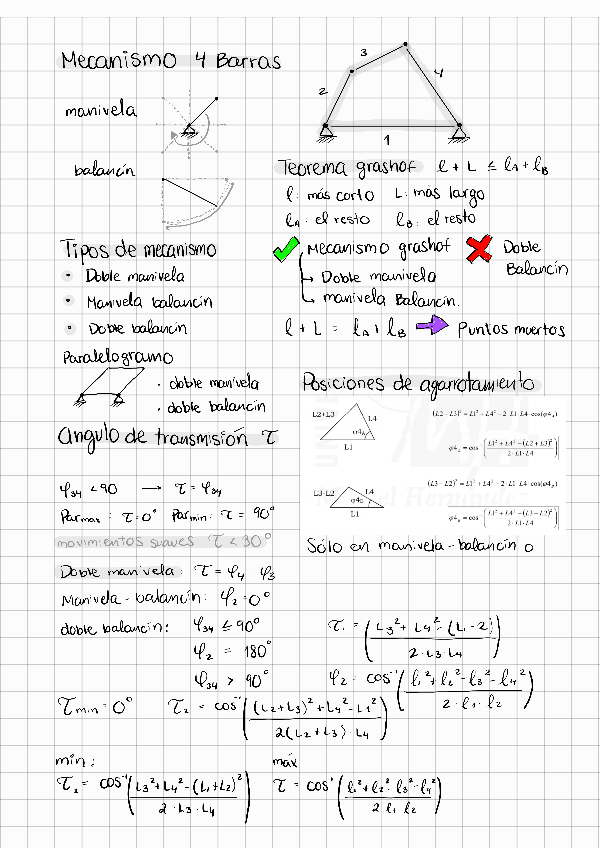 Mecanismo 4 Barras
manivela
balancín
2
3
4
1
Teorema grashof l + L ≤ lA + lB
l: más corto L: más largo
lA: el resto lB: el resto
Tipos de mecanismo
• Doble manivela
• Manivela balancín
• Doble balancín
✓ Mecanismo grashof
↳ Doble manivela
↳ manivela Balancín.
✗ Doble
Balancín
l + L = lA + lB → Puntos muertos
Paralelogramo
· doble manivela
· doble balancín
Posiciones de agarrotamiento
L2+L3 L4
φ4A
L1
(L2−L3)² = L1² + L4² − 2·L1·L4·cos(φ4A)
φ4A = cos⁻ ((L1² + L4² − (L2+L3)²) / (2·L1·L4))
L3-L2 L4
φ4B
L1
(L3−L2)² = L1² + L4² − 2·L1·L4·cos(φ4B)
φ4B = cos⁻ ((L1² + L4² − (L3−L2)²) / (2·L1·L4))
Angulo de transmisión τ
φ34 < 90 → τ = φ34
Parmax: τ = 0° Parmin: τ = 90°
movimientos suaves τ < 30°
Sólo en manivela-balancín o
Doble manivela: τ = φ4 φ3
Manivela-balancín: φ2 = 0°
doble balancín: φ34 ≤ 90°
φ2 = 180°
φ34 > 90°
τ1 = ((L3² + L4² − (L1 − 2)) / (2·L3·L4))
φ2 = cos⁻¹ ((l1² + l2² − l3² − l4²) / (2·l1·l2))
τmin = 0° τ2 = cos⁻¹ (((L2+L3)² + L4² − L1²) / (2(L2+L3)·L4))
min:
τ2 = cos⁻¹ ((L3² + L4² − (L1+L2)²) / (2·L3·L4))
máx
τ = cos⁻¹ ((l1² + l2² − l3² − l4²) / (2 l1 l2))